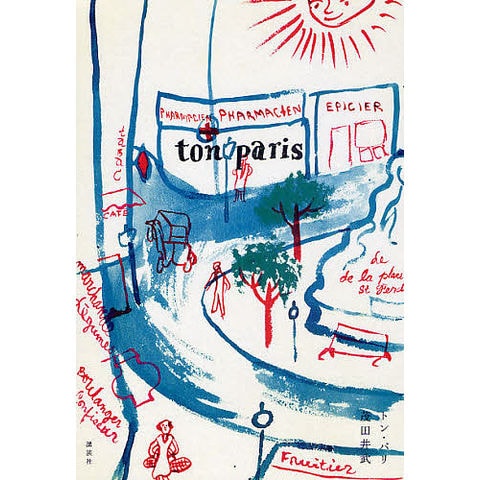 PHARMACIEN PHARMACIEN
EPICIER
ton paris
CAFÉ
de
de la place
marchand
Légumes
Boulanger
Confiseur
トン・パリ
茂田井武
講談社
Fruitier